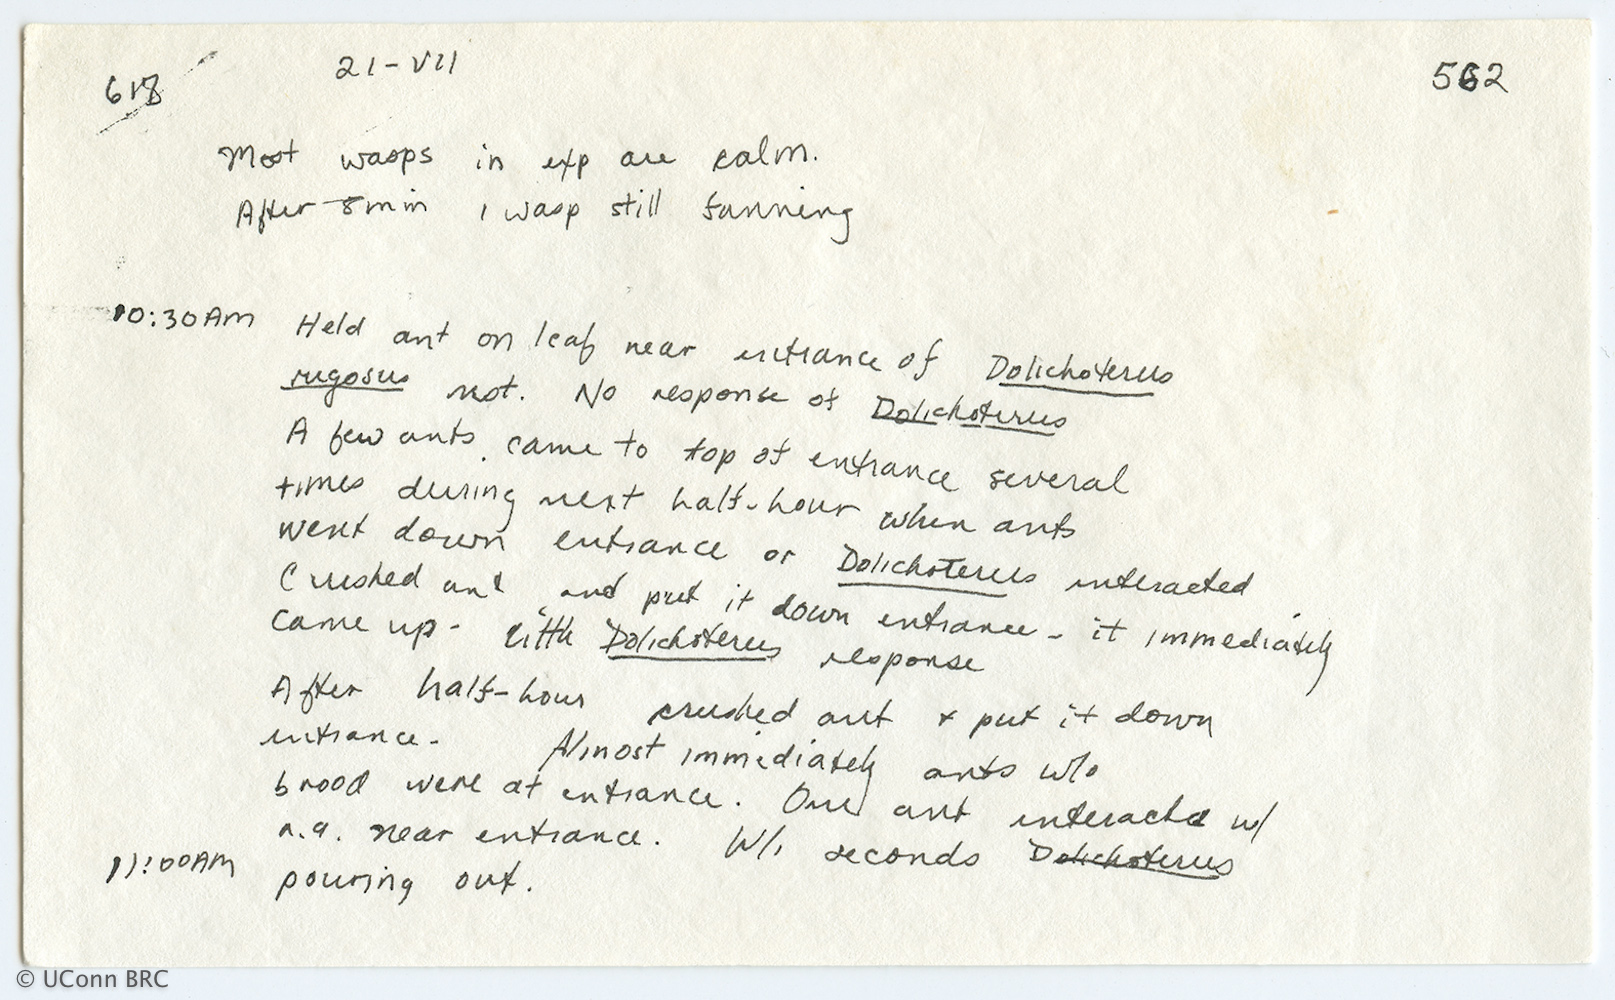 618 21-VII 562
Most wasps in exp are calm.
After 8min 1 wasp still fanning
10:30AM Held ant on leaf near entrance of Dolichoterus
rugosus nest. No response of Dolichoterus
A few ants came to top of entrance several
times during next half-hour when ants
went down entrance or Dolichoterus interacted
Crushed ant and put it down entrance - it immediately
came up - little Dolichoterus response
After half-hour crushed ant & put it down
entrance - Almost immediately ants w/o
brood were at entrance. One ant interacted w/
n.a. near entrance. W/i seconds Dolichoterus
11:00AM pouring out.
© UConn BRC